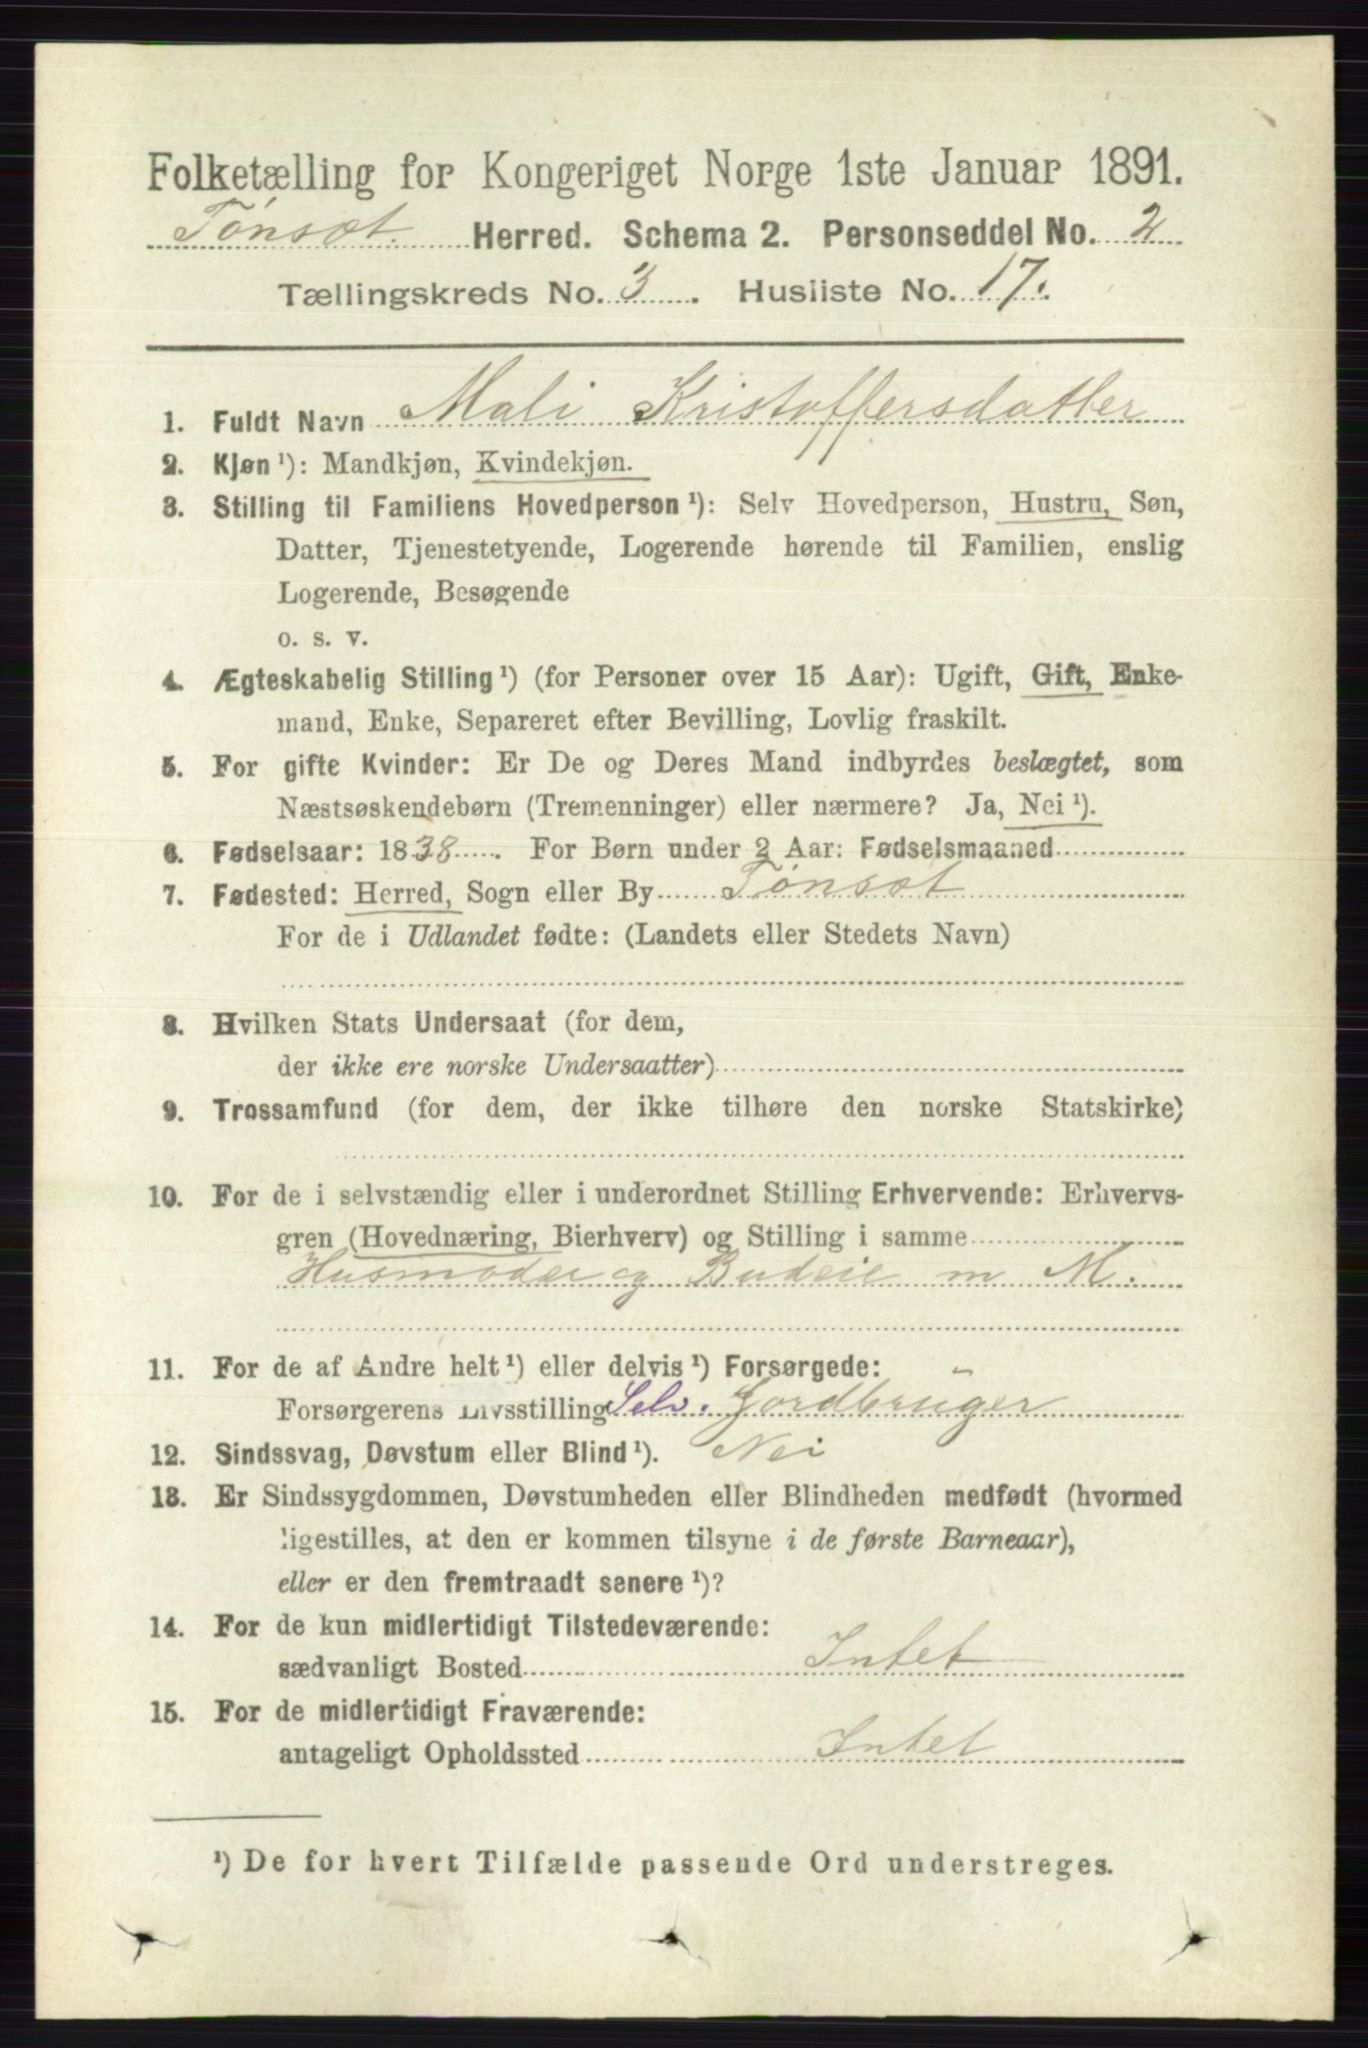 Folketælling for Kongeriget Norge 1ste Januar 1891.
Tønset. Herred. Schema 2. Personseddel No. 2
Tællingskreds No. 3. Husliste No. 17.
1. Fuldt Navn Mali Kristoffersdatter
2. Kjøn ¹): Mandkjøn, Kvindekjøn.
3. Stilling til Familiens Hovedperson ¹): Selv Hovedperson, Hustru, Søn,
Datter, Tjenestetyende, Logerende hørende til Familien, enslig
Logerende, Besøgende
o. s. v.
4. Ægteskabelig Stilling ¹) (for Personer over 15 Aar): Ugift, Gift, Enke-
mand, Enke, Separeret efter Bevilling, Lovlig fraskilt.
5. For gifte Kvinder: Er De og Deres Mand indbyrdes beslægtet, som
Næstsøskendebørn (Tremenninger) eller nærmere? Ja, Nei ¹).
6. Fødselsaar: 1838. For Børn under 2 Aar: Fødselsmaaned
7. Fødested: Herred, Sogn eller By Tønset
For de i Udlandet fødte: (Landets eller Stedets Navn)
8. Hvilken Stats Undersaat (for dem,
der ikke ere norske Undersaatter)
9. Trossamfund (for dem, der ikke tilhøre den norske Statskirke)
10. For de i selvstændig eller i underordnet Stilling Erhvervende: Erhvervs-
gren (Hovednæring, Bierhverv) og Stilling i samme
Husmoder og Budeie m M.
11. For de af Andre helt ¹) eller delvis ¹) Forsørgede:
Forsørgerens Livsstilling Selv. Jordbruger
12. Sindssvag, Døvstum eller Blind ¹). Nei
13. Er Sindssygdommen, Døvstumheden eller Blindheden medfødt (hvormed
ligestilles, at den er kommen tilsyne i de første Barneaar),
eller er den fremtraadt senere ¹)?
14. For de kun midlertidigt Tilstedeværende:
sædvanligt Bosted Intet
15. For de midlertidigt Fraværende:
antageligt Opholdssted Intet
¹) De for hvert Tilfælde passende Ord understreges.